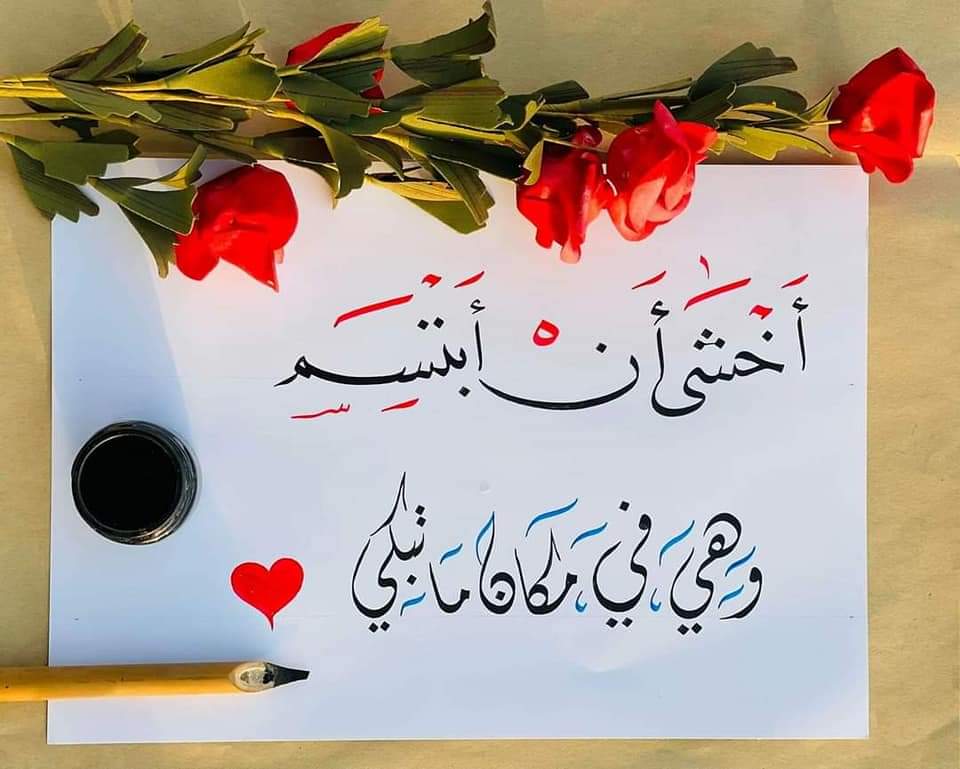 أَخْشَى أَنْ أَبْتَسِم
وَهِيَ فِي مَكَان مَا تَبْكِي